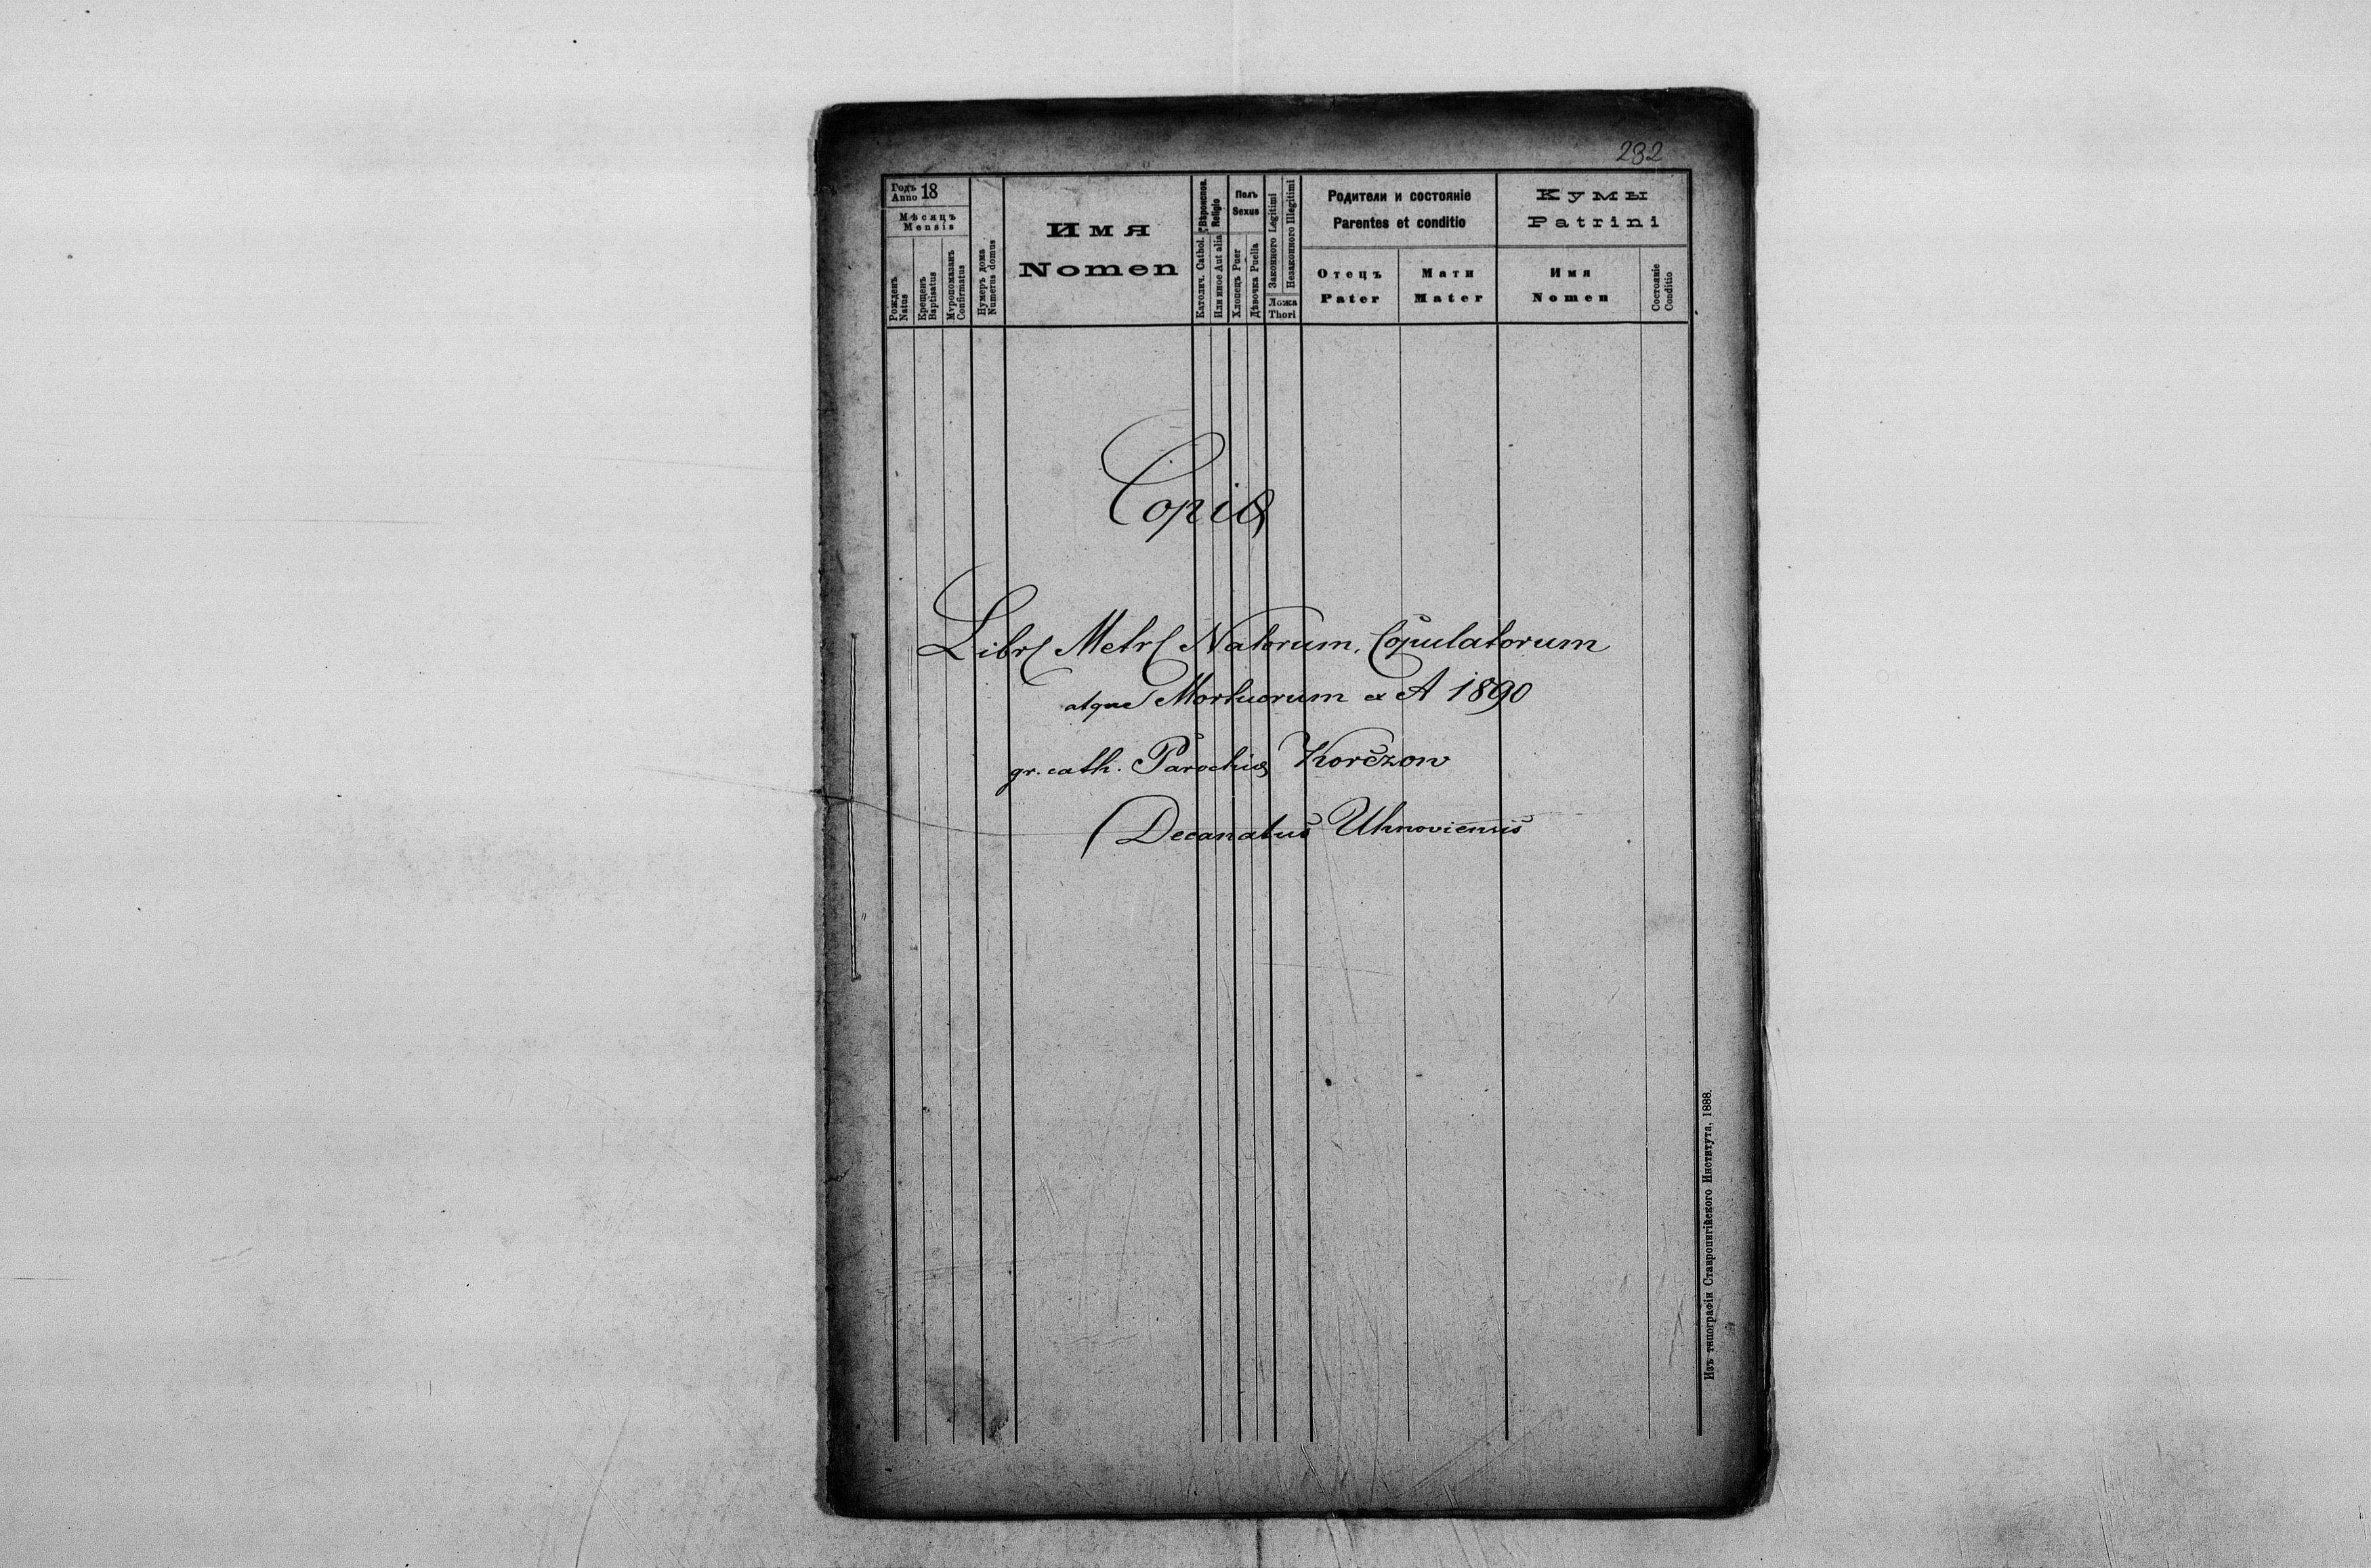 232
Годъ Anno 18
Мѣсяцъ
Mensis
Рожденъ Natus
Крещенъ Baptisatus
Мѵропомазанъ Confirmatus
Нумеръ дома Numerus domus
Имя
Nomen
Вѣроиспов. Religio
Католич. Cathol.
Или иное Aut alia
Полъ
Sexus
Хлопецъ Puer
Дѣвочка Puella
Законного Legitimi
Незаконного Illegitimi
Ложа
Thori
Родители и состояніе
Parentes et conditio
Отецъ
Pater
Мати
Mater
Кумы
Patrini
Имя
Nomen
Состояніе Conditio
Copia
Libr Metr Natorum, Copulatorum
atque Mortuorum ex A 1890
gr. cath. Parochia Korczow
Decanatus Uhnoviensis
Изъ типографіи Ставропигійского Института, 1888.